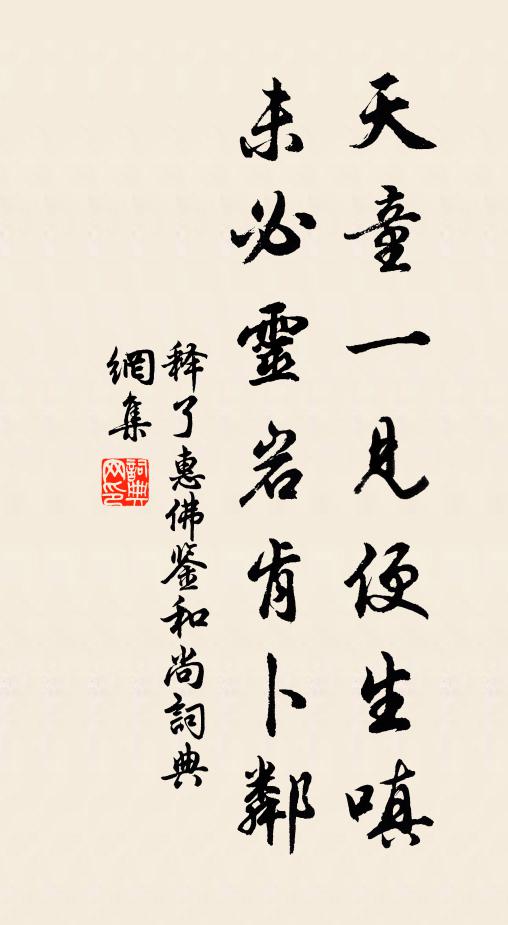 天童一見便生嗔
未必靈岩肯卜鄰
释了惠佛鉴和尚詞典
網集
詞典
网印